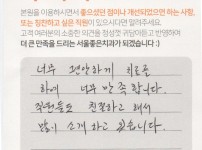 본원을 이용하시면서 좋으셨던 점이나 개선되었으면 하는 사항,
또는 칭찬하고 싶은 직원이 있으시다면 알려주세요.
고객 여러분의 소중한 의견을 정성껏 귀담아듣고 반영하여
더 큰 만족을 드리는 서울좋은치과가 되겠습니다 :)
너무 편안하게 치료를
하여 너무 만족합니다.
직원분들도 친절하고 해서
많이 소개하고 있습니다.